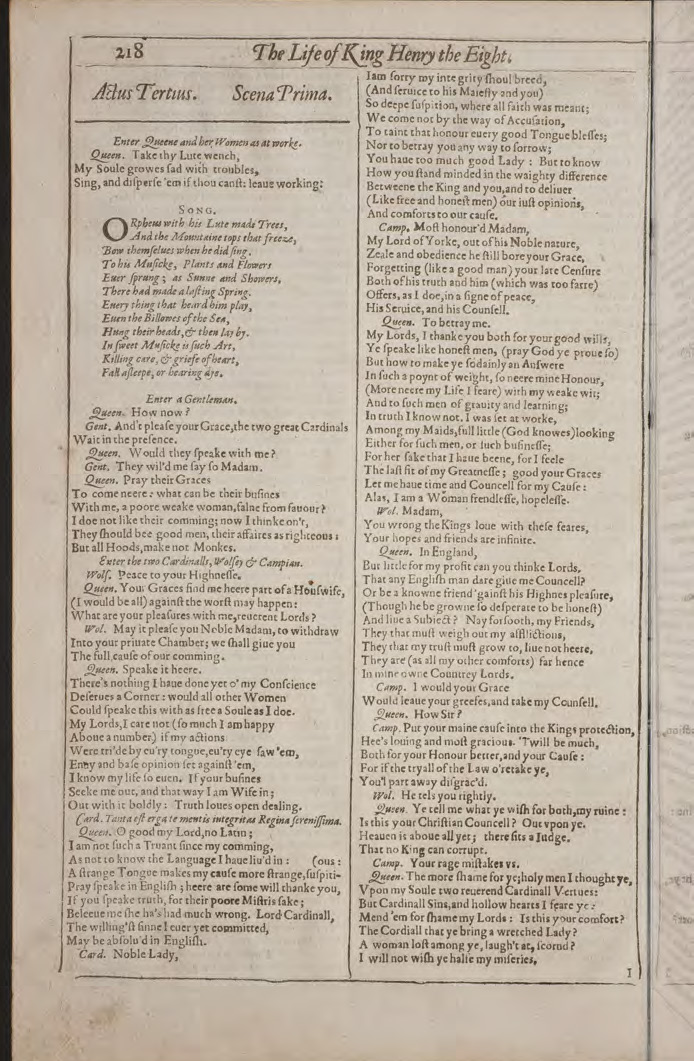 218
The Life of King Henry the Eight.
Actus Tertius. Scena Prima.
Enter Queene and her Women as at worke.
Queen. Take thy Lute wench,
My Soule growes sad with troubles,
Sing, and disperse 'em if thou canst: leaue working:
SONG.
ORpheus with his Lute made Trees,
And the Mountaine tops that freeze,
Bow themselues when he did sing.
To his Musicke, Plants and Flowers
Euer sprung; as Sunne and Showers,
There had made a lasting Spring.
Euery thing that heard him play,
Euen the Billowes of the Sea,
Hung their heads, & then lay by.
In sweet Musicke is such Art,
Killing care, & griefe of heart,
Fall asleepe, or hearing dye.
Enter a Gentleman.
Queen. How now?
Gent. And't please your Grace, the two great Cardinals
Wait in the presence.
Queen. Would they speake with me?
Gent. They wil'd me say so Madam.
Queen. Pray their Graces
To come neere: what can be their busines
With me, a poore weake woman, falne from fauour?
I doe not like their comming; now I thinke on't,
They should bee good men, their affaires as righteous:
But all Hoods, make not Monkes.
Enter the two Cardinalls, Wolsey & Campian.
Wols. Peace to your Highnesse.
Queen. Your Graces find me heere part of a Houswife,
(I would be all) against the worst may happen:
What are your pleasures with me, reuerent Lords?
Wol. May it please you Noble Madam, to withdraw
Into your priuate Chamber; we shall giue you
The full cause of our comming.
Queen. Speake it heere.
There's nothing I haue done yet o' my Conscience
Deserues a Corner: would all other Women
Could speake this with as free a Soule as I doe.
My Lords, I care not (so much I am happy
Aboue a number) if my actions
Were tri'de by eu'ry tongue, eu'ry eye saw 'em,
Enuy and base opinion set against 'em,
I know my life so euen. If your busines
Seeke me out, and that way I am Wife in;
Out with it boldly: Truth loues open dealing.
Card. Tanta est erga te mentis integritas Regina serenissima.
Queen. O good my Lord, no Latin;
I am not such a Truant since my comming,
As not to know the Language I haue liu'd in: (ous:
A strange Tongue makes my cause more strange, suspiti-
Pray speake in English; heere are some will thanke you,
If you speake truth, for their poore Mistris sake;
Beleeue me she ha's had much wrong. Lord Cardinall,
The willing'st sinne I euer yet committed,
May be absolu'd in English.
Card. Noble Lady,
I am sorry my integrity shoul breed,
(And seruice to his Maiesty and you)
So deepe suspition, where all faith was meant;
We come not by the way of Accusation,
To taint that honour euery good Tongue blesses;
Nor to betray you any way to sorrow;
You haue too much good Lady: But to know
How you stand minded in the waighty difference
Betweene the King and you, and to deliuer
(Like free and honest men) our iust opinions,
And comforts to our cause.
Camp. Most honour'd Madam,
My Lord of Yorke, out of his Noble nature,
Zeale and obedience he still bore your Grace,
Forgetting (like a good man) your late Censure
Both of his truth and him (which was too farre)
Offers, as I doe, in a signe of peace,
His Seruice, and his Counsell.
Queen. To betray me.
My Lords, I thanke you both for your good wills,
Ye speake like honest men, (pray God ye proue so)
But how to make ye sodainly an Answere
In such a poynt of weight, so neere mine Honour,
(More neere my Life I feare) with my weake wit;
And to such men of grauity and learning;
In truth I know not. I was set at worke,
Among my Maids, full little (God knowes) looking
Either for such men, or such businesse;
For her sake that I haue beene, for I feele
The last fit of my Greatnesse; good your Graces
Let me haue time and Councell for my Cause:
Alas, I am a Woman frendlesse, hopelesse.
Wol. Madam,
You wrong the Kings loue with these feares,
Your hopes and friends are infinite.
Queen. In England,
But little for my profit can you thinke Lords,
That any English man dare giue me Councell?
Or be a knowne friend 'gainst his Highnes pleasure,
(Though he be growne so desperate to be honest)
And liue a Subiect? Nay forsooth, my Friends,
They that must weigh out my afflictions,
They that my trust must grow to, liue not heere,
They are (as all my other comforts) far hence
In mine owne Countrey Lords.
Camp. I would your Grace
Would leaue your greefes, and take my Counsell.
Queen. How Sir?
Camp. Put your maine cause into the Kings protection,
Hee's louing and most gracious. 'Twill be much,
Both for your Honour better, and your Cause:
For if the tryall of the Law o'retake ye,
You'l part away disgrac'd.
Wol. He tels you rightly.
Queen. Ye tell me what ye wish for both, my ruine:
Is this your Christian Councell? Out vpon ye.
Heauen is aboue all yet; there sits a Iudge,
That no King can corrupt.
Camp. Your rage mistakes vs.
Queen. The more shame for ye; holy men I thought ye,
Vpon my Soule two reuerend Cardinall Vertues:
But Cardinall Sins, and hollow hearts I feare ye:
Mend 'em for shame my Lords: Is this your comfort?
The Cordiall that ye bring a wretched Lady?
A woman lost among ye, laugh't at, scornd?
I will not wish ye halfe my miseries,
I